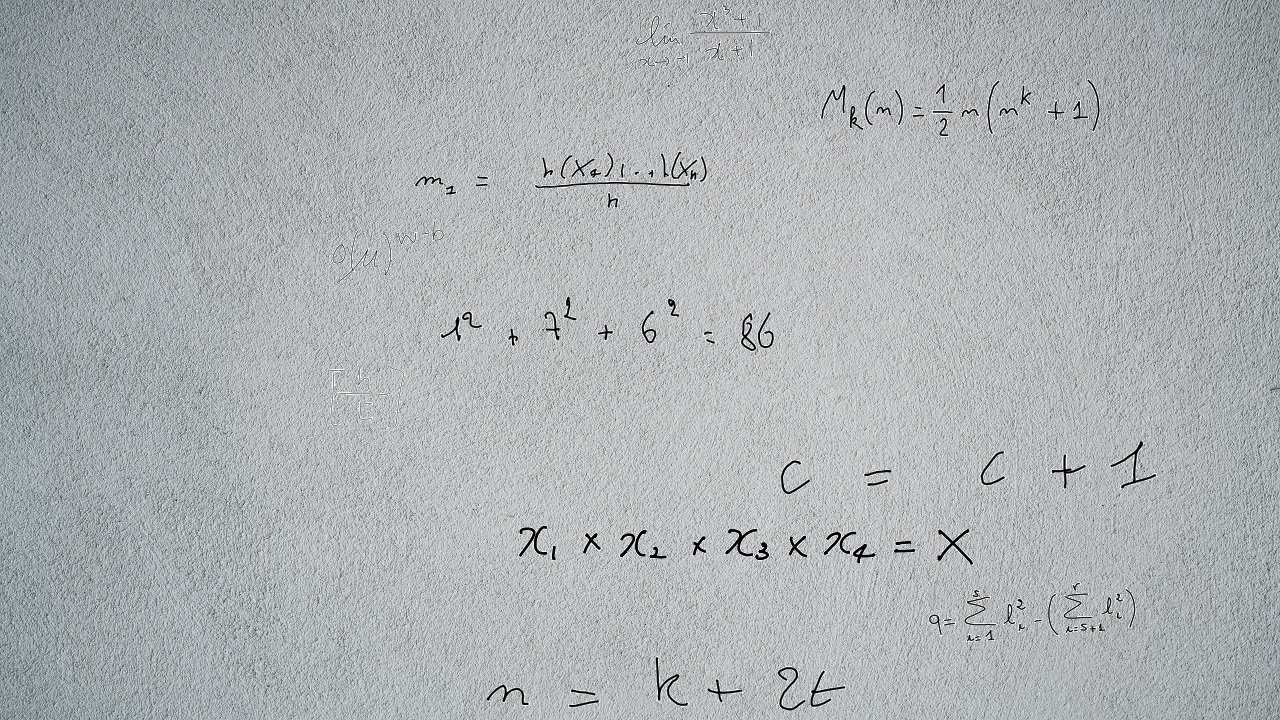 lim x→-1 (x³+1)/(x+1)
M_k(n) = 1/2 n(n^k + 1)
m_1 = (h(X_1)+...+h(X_n))/n
O(μ)^{w-b}
1² + 7² + 6² = 86
c = c + 1
x_1 × x_2 × x_3 × x_4 = X
q = ∑_{i=1}^{s} l_i² - (∑_{i=s+1}^{r} l_i²)
n = k + 2t